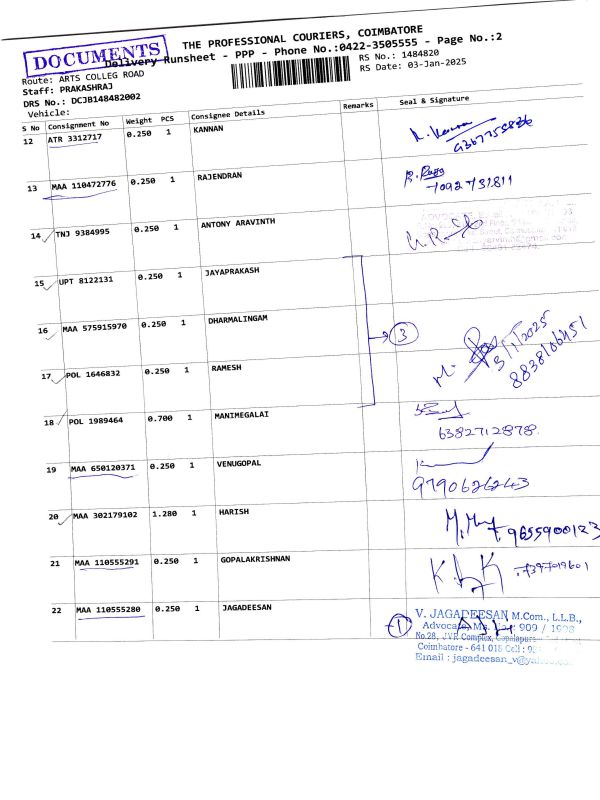 DOCUMENTS
THE PROFESSIONAL COURIERS, COIMBATORE
Delivery Runsheet - PPP - Phone No.:0422-3505555 - Page No.:2
Route: ARTS COLLEG ROAD
RS No.: 1484820
Staff: PRAKASHRAJ
RS Date: 03-Jan-2025
DRS No.: DCJB148482002
Vehicle:
S No Consignment No Weight PCS Consignee Details Remarks Seal & Signature
12 ATR 3312717 0.250 1 KANNAN
13 MAA 110472776 0.250 1 RAJENDRAN
14 TNJ 9384995 0.250 1 ANTONY ARAVINTH
15 UPT 8122131 0.250 1 JAYAPRAKASH
16 MAA 575915970 0.250 1 DHARMALINGAM
3
3/1/2025
8838106451
17 POL 1646832 0.250 1 RAMESH
18 POL 1989464 0.700 1 MANIMEGALAI
6382712878
19 MAA 650120371 0.250 1 VENUGOPAL
9790626243
20 MAA 302179102 1.280 1 HARISH
9655900123
21 MAA 110555291 0.250 1 GOPALAKRISHNAN
7397019601
22 MAA 110555280 0.250 1 JAGADEESAN
1
V. JAGADEESAN M.Com., L.L.B.,
Advocate, 909 / 1998
No.28, JVR Complex,
Coimbatore - 641 018 Cell :
Email : jagadeesan_v@